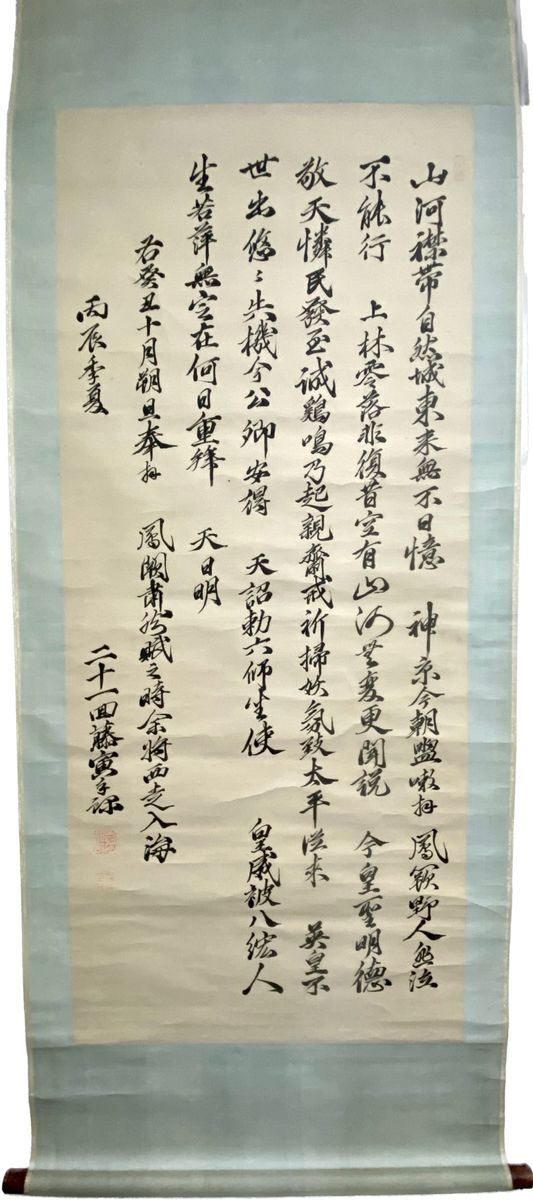 山河襟帯自然城東来無不日憶　神京今朝盥嗽拜　鳳闕野人悲泣
不能行　上林零落非復昔空有山河無変更聞説　今皇聖明徳
敬天憐民発至誠鶏鳴乃起親斎戒祈掃妖氛致太平従来　英皇不
世出悠々失機今公卿安得　天詔勅六師坐使　皇威被八紘人
生若萍無定在何日重拜　天日明
右癸丑十月朔旦奉拜　鳳闕粛然賦之時余将西走入海
丙辰季夏
二十一回藤寅手録